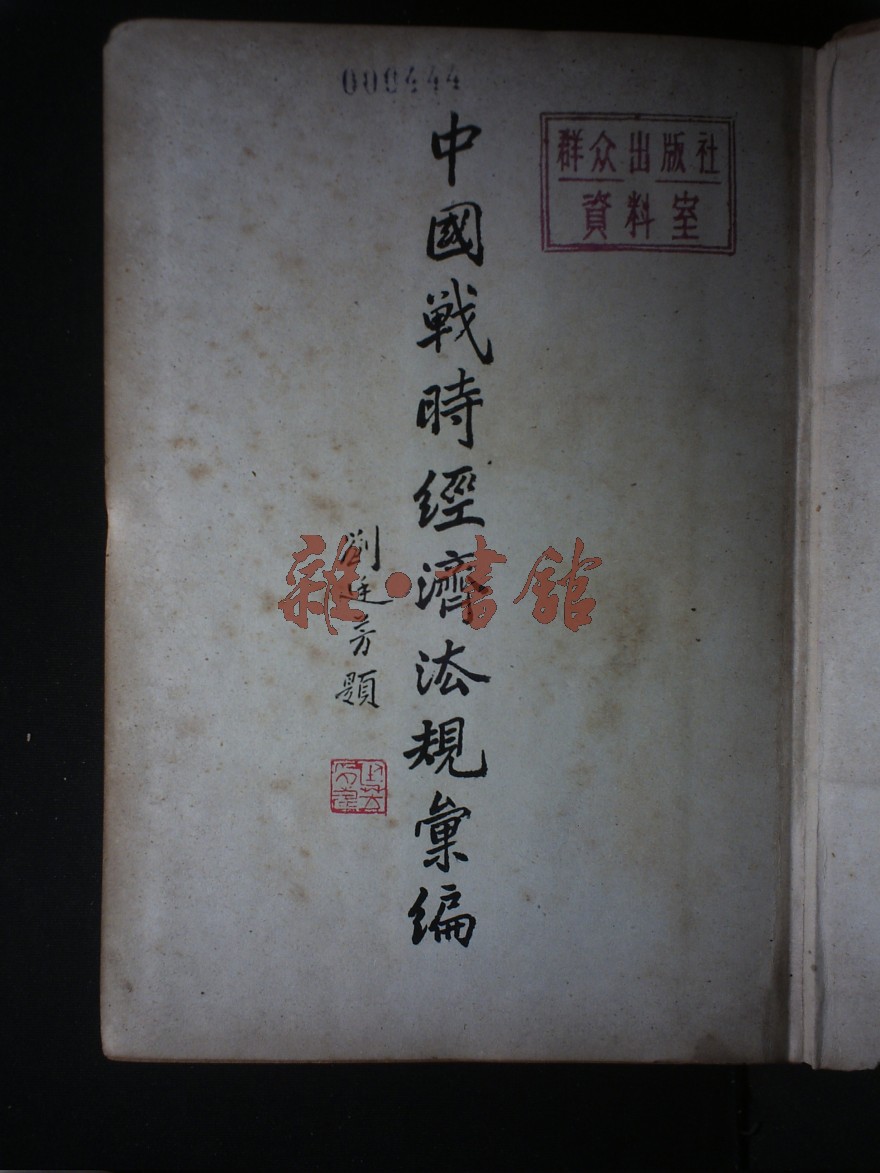 000444
群众出版社
資料室
中國戦時経濟法規彙編
劉廷芳題
雜·書館